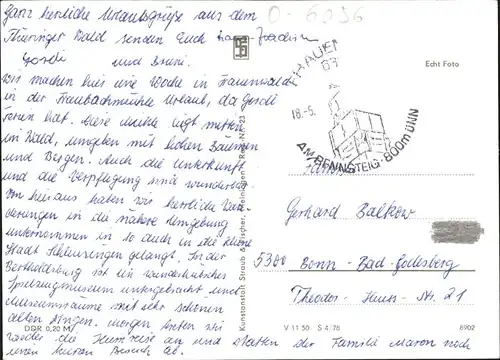 O-6096
Ganz herrliche Urlaubsgrüße aus dem
Thüringer Wald senden Euch
Gerdi und
Wir machen hier eine Woche in Frauenwald
in der Fraubachmühle Urlaub, da Gerdi
Ferien hat. Diese Mühle liegt mitten
im Wald, umgeben mit hohen Bäumen
und Bergen. Auch die Unterkunft
und die Verpflegung sind wunderbar.
Von hier aus haben wir herrliche Wan-
derungen in die nähere Umgebung
unternommen in so auch in die kleine
Stadt Schleusingen gelangt. In der
Bertholdsburg ist ein wunderhübsches
Spielzeugmuseum untergebracht und
Museumsräume mit sehr schönen
alten Dingen. Morgen treten wir
wieder die Heimreise an und statten der Familie Maron noch
einen kurzen Besuch ab.
DDR 0,20 M
Kunstanstalt Straub & Fischer, Meiningen * Reg.-Nr. 23
Echt Foto
FRAUEN
63
18.-5.
AM RENNSTEIG · 800m ÜNN
Familie
Gerhard Balkow
5300 Bonn - Bad-Godesberg
Theodor - Heuss - Str. 21
V 11 50 S 4/78 8902